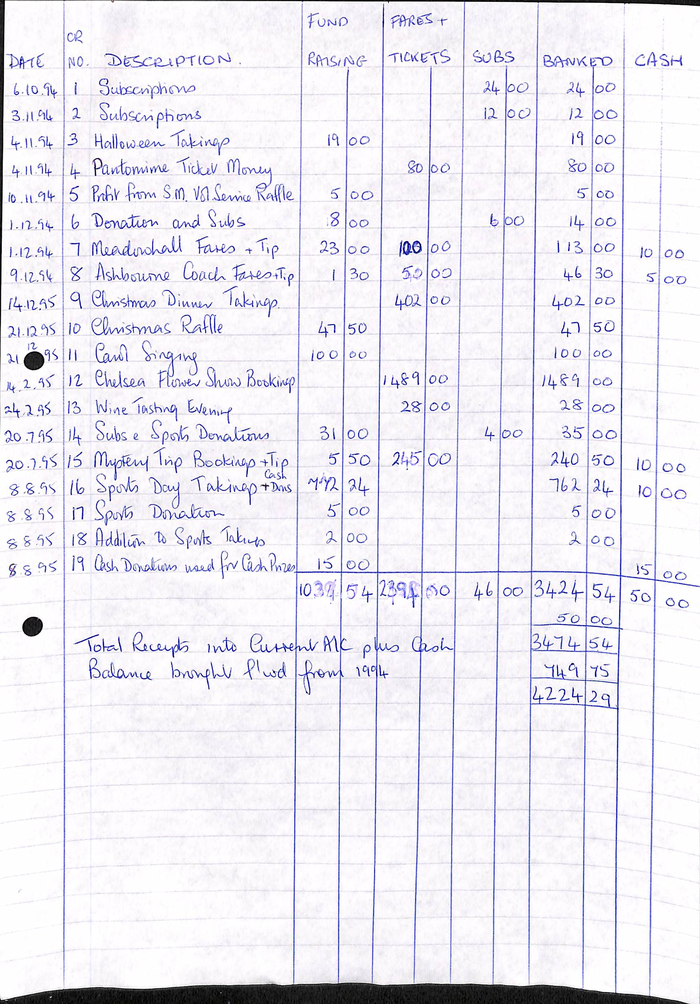 FUND FARES +
CR
DATE NO. DESCRIPTION. RAISING TICKETS SUBS BANKED CASH
6.10.94 1 Subscriptions 24 00 24 00
3.11.94 2 Subscriptions 12 00 12 00
4.11.94 3 Halloween Takings 19 00 19 00
4.11.94 4 Pantomime Ticket Money 80 00 80 00
10.11.94 5 Profit from S.M. Service Raffle 5 00 5 00
1.12.94 6 Donation and Subs 8 00 6 00 14 00
1.12.94 7 Meadowhall Fares + Tip 23 00 100 00 113 00 10 00
9.12.94 8 Ashbourne Coach Fares + Tip 1 30 50 00 46 30 5 00
14.12.95 9 Christmas Dinner Takings. 402 00 402 00
21.12.95 10 Christmas Raffle 47 50 47 50
21 12 95 11 Carol Singing 100 00 100 00
14.2.95 12 Chelsea Flower Show Bookings 1489 00 1489 00
24.2.95 13 Wine Tasting Evening 28 00 28 00
20.7.95 14 Subs & Sports Donations 31 00 4 00 35 00
20.7.95 15 Mystery Trip Bookings + Tip 5 50 245 00 240 50 10 00
8.8.95 16 Sports Day Takings + Cash Dons 24 762 24 10 00
8.8.95 17 Sports Donation 5 00 5 00
8.8.95 18 Addition to Sports Takings 2 00 2 00
8.8.95 19 Cash Donations used for Cash Prizes 15 00 15 00
54 46 00 3424 54 50 00
50 00
Total Receipts into Current A/C plus Cash 3474 54
Balance brought f'wd from 1994 749 75
4224 29